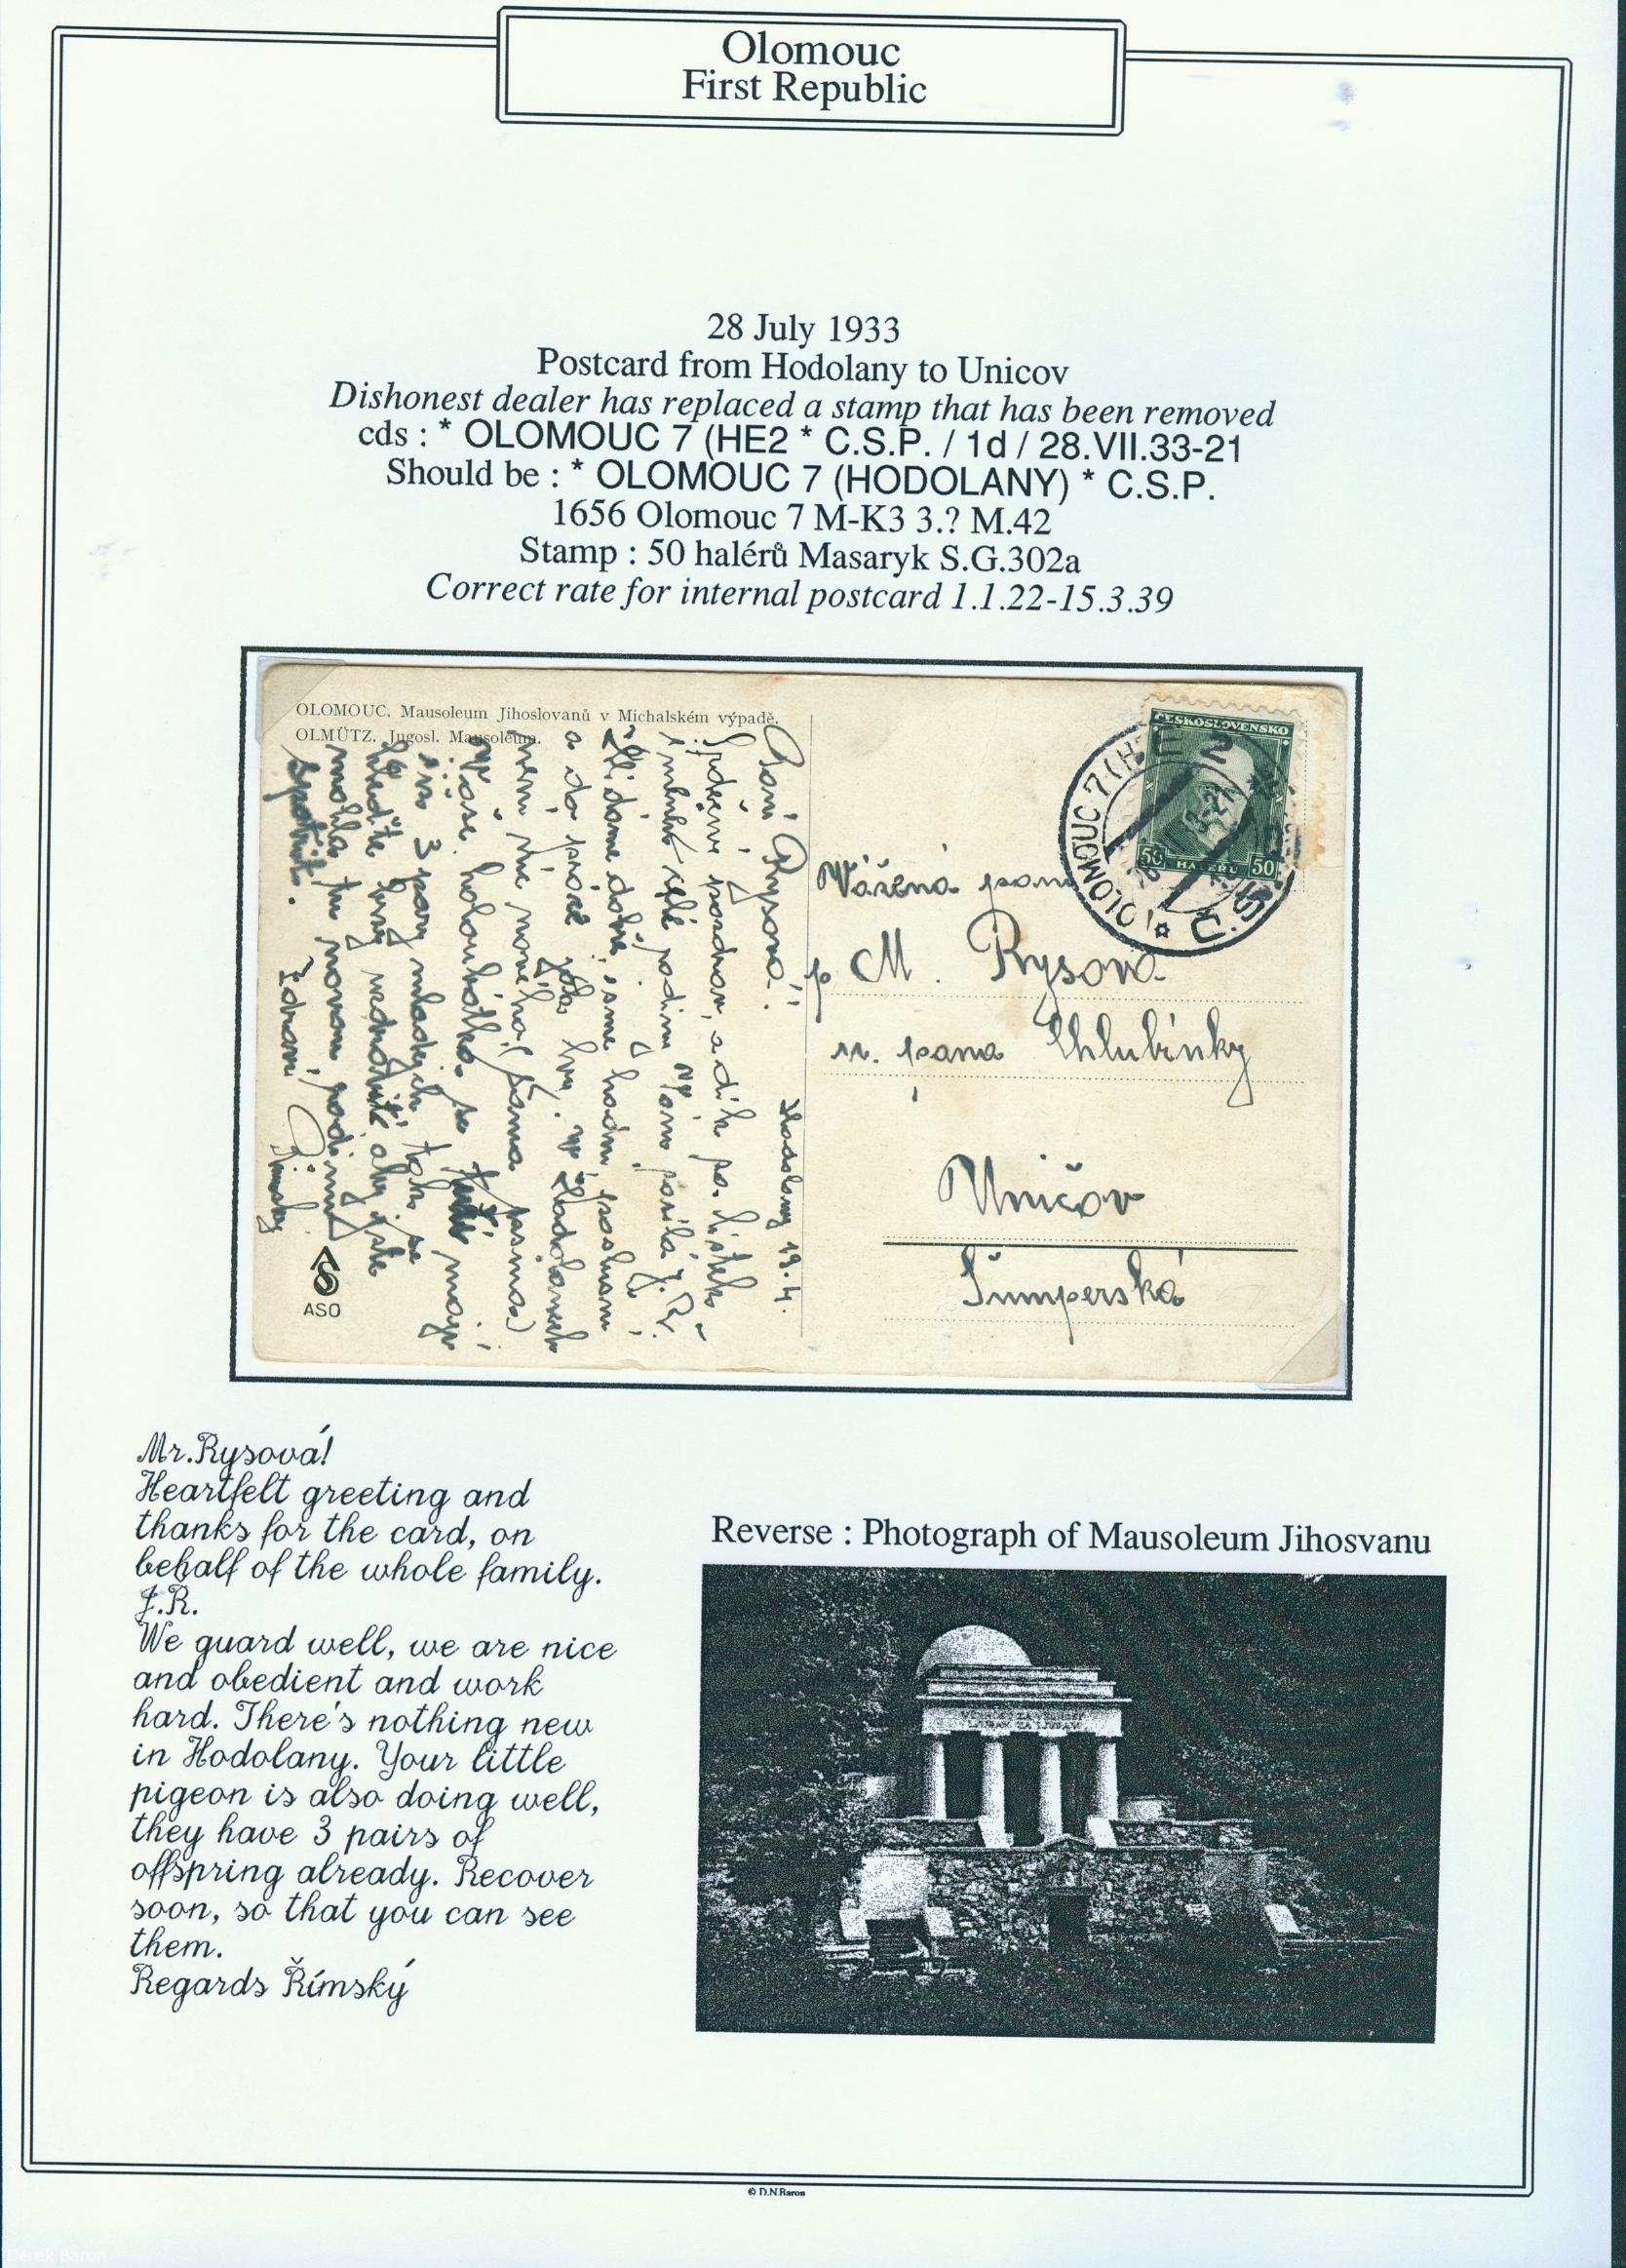 Olomouc
First Republic
28 July 1933
Postcard from Hodolany to Unicov
Dishonest dealer has replaced a stamp that has been removed
cds : * OLOMOUC 7 (HE2 * C.S.P. / 1d / 28.VII.33-21
Should be : * OLOMOUC 7 (HODOLANY) * C.S.P.
1656 Olomouc 7 M-K3 3.? M.42
Stamp : 50 halérů Masaryk S.G.302a
Correct rate for internal postcard 1.1.22-15.3.39
OLOMOUC. Mausoleum Jihoslovanů v Michalském výpadě.
OLMÜTZ. Jugosl. Mausoleum.
Hodolany 19.4.
Paní Rysová!
Srdečný pozdrav, a dík za lístek
celé rodiny Vám posílá J. R.
dobře, jsme hodní
a do práce
není nic nového
Vaše holoubátka
3 páry mladých, tak se
hleďte brzy uzdravit aby jste
mohla tu novou rodinu
spatřit.
Zdraví Římský
ASO
ČESKOSLOVENSKO
50 HALÉŘŮ 50
OLOMOUC 7 (HE2
Č.S.P.
Vážená paní
p M. Rysová
u. pana Chlubínky
Uničov
Šumperská
Mr.Rysová!
Heartfelt greeting and
thanks for the card, on
behalf of the whole family.
J.R.
We guard well, we are nice
and obedient and work
hard. There's nothing new
in Hodolany. Your little
pigeon is also doing well,
they have 3 pairs of
offspring already. Recover
soon, so that you can see
them.
Regards Římský
Reverse : Photograph of Mausoleum Jihosvanu
© D.N.Baron
Derek Baron